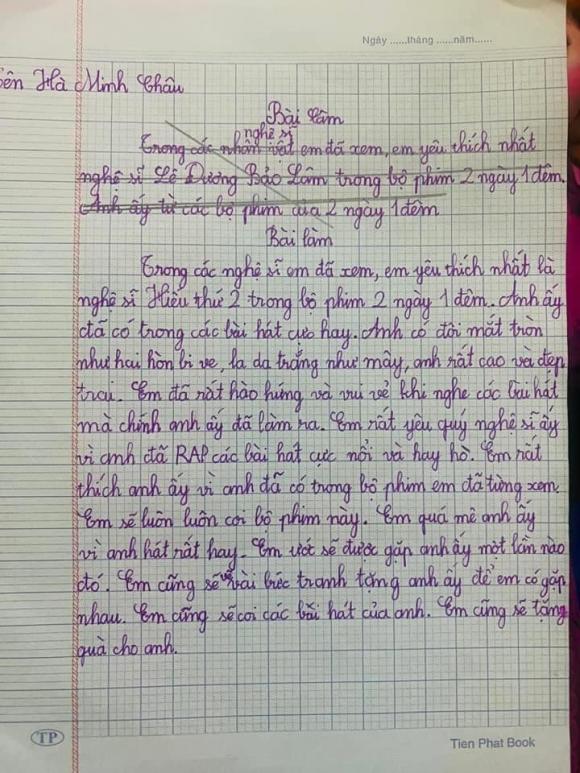 Ngày ......tháng ......năm......
ên Hà Minh Châu
Bài làm
nghệ sĩ
Trong các nhân vật em đã xem, em yêu thích nhất
nghệ sĩ Lê Dương Bảo Lâm trong bộ phim 2 ngày 1 đêm.
Anh ấy từ các bộ phim của 2 ngày 1 đêm
Bài làm
Trong các nghệ sĩ em đã xem, em yêu thích nhất là
nghệ sĩ Hiếu thứ 2 trong bộ phim 2 ngày 1 đêm. Anh ấy
đã có trong các bài hát cực hay. Anh có đôi mắt tròn
như hai hòn bi ve, la da trắng như mây, anh rất cao và đẹp
trai. Em đã rất hào hứng và vui vẻ khi nghe các bài hát
mà chính anh ấy đã làm ra. Em rất yêu quý nghệ sĩ ấy
vì anh đã RAP các bài hát cực nổi và hay hò. Em rất
thích anh ấy vì anh đã có trong bộ phim em đã từng xem.
Em sẽ luôn luôn coi bộ phim này. Em quá mê anh ấy
vì anh hát rất hay. Em ước sẽ được gặp anh ấy một lần nào
đó. Em cũng sẽ vẽ vài bức tranh tặng anh ấy để em có gặp
nhau. Em cũng sẽ coi các bài hát của anh. Em cũng sẽ tặng
quà cho anh.
TP
Tien Phat Book